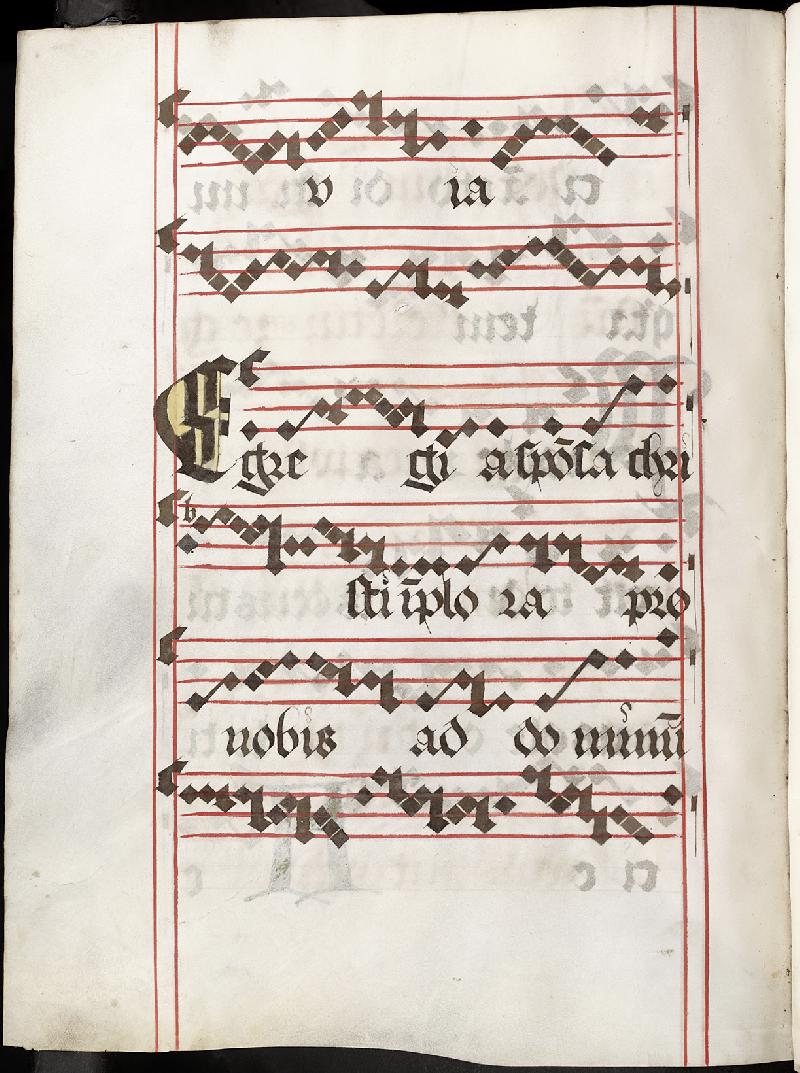 v ia
Egre a gi a spōsa chri
sti īplo ra pro
nobis ad do minū